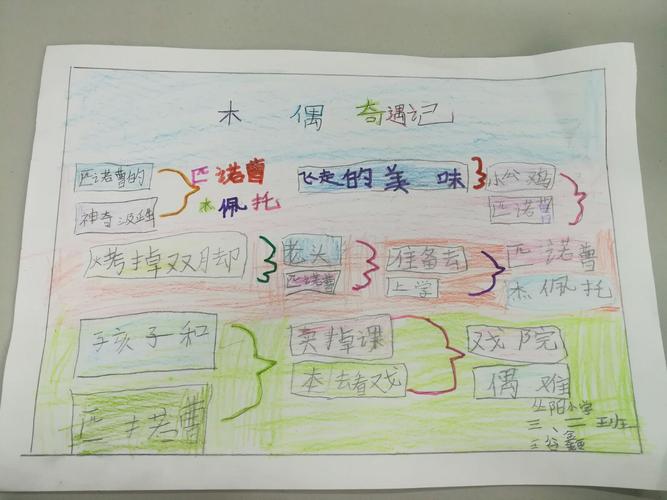 木偶奇遇记
匹诺曹的 匹诺曹 飞走的美味 小公鸡
神奇诞生 杰佩托 匹诺曹
烤掉双脚 老头 准备去 匹诺曹
匹诺曹 上学 杰佩托
孩子和 卖掉课 戏院
匹诺曹 本去看戏 偶难
丛阳小学
三、二班